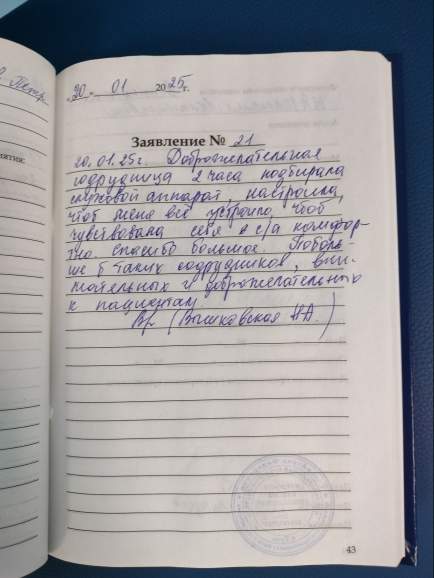 "20" 01 2025г.
Заявление № 21
20.01.25г. Доброжелательная
содрудница 2 часа подбирала
слуховой аппарат, настроила,
чтоб меня всё устроило, чтоб
чувствовала себя в с/а комфор-
тно. Спасибо большое. Поболь-
ше б таких содрудников, вни-
мательных и доброжелательных
к пациентам.
(Вышковская НА.)
43